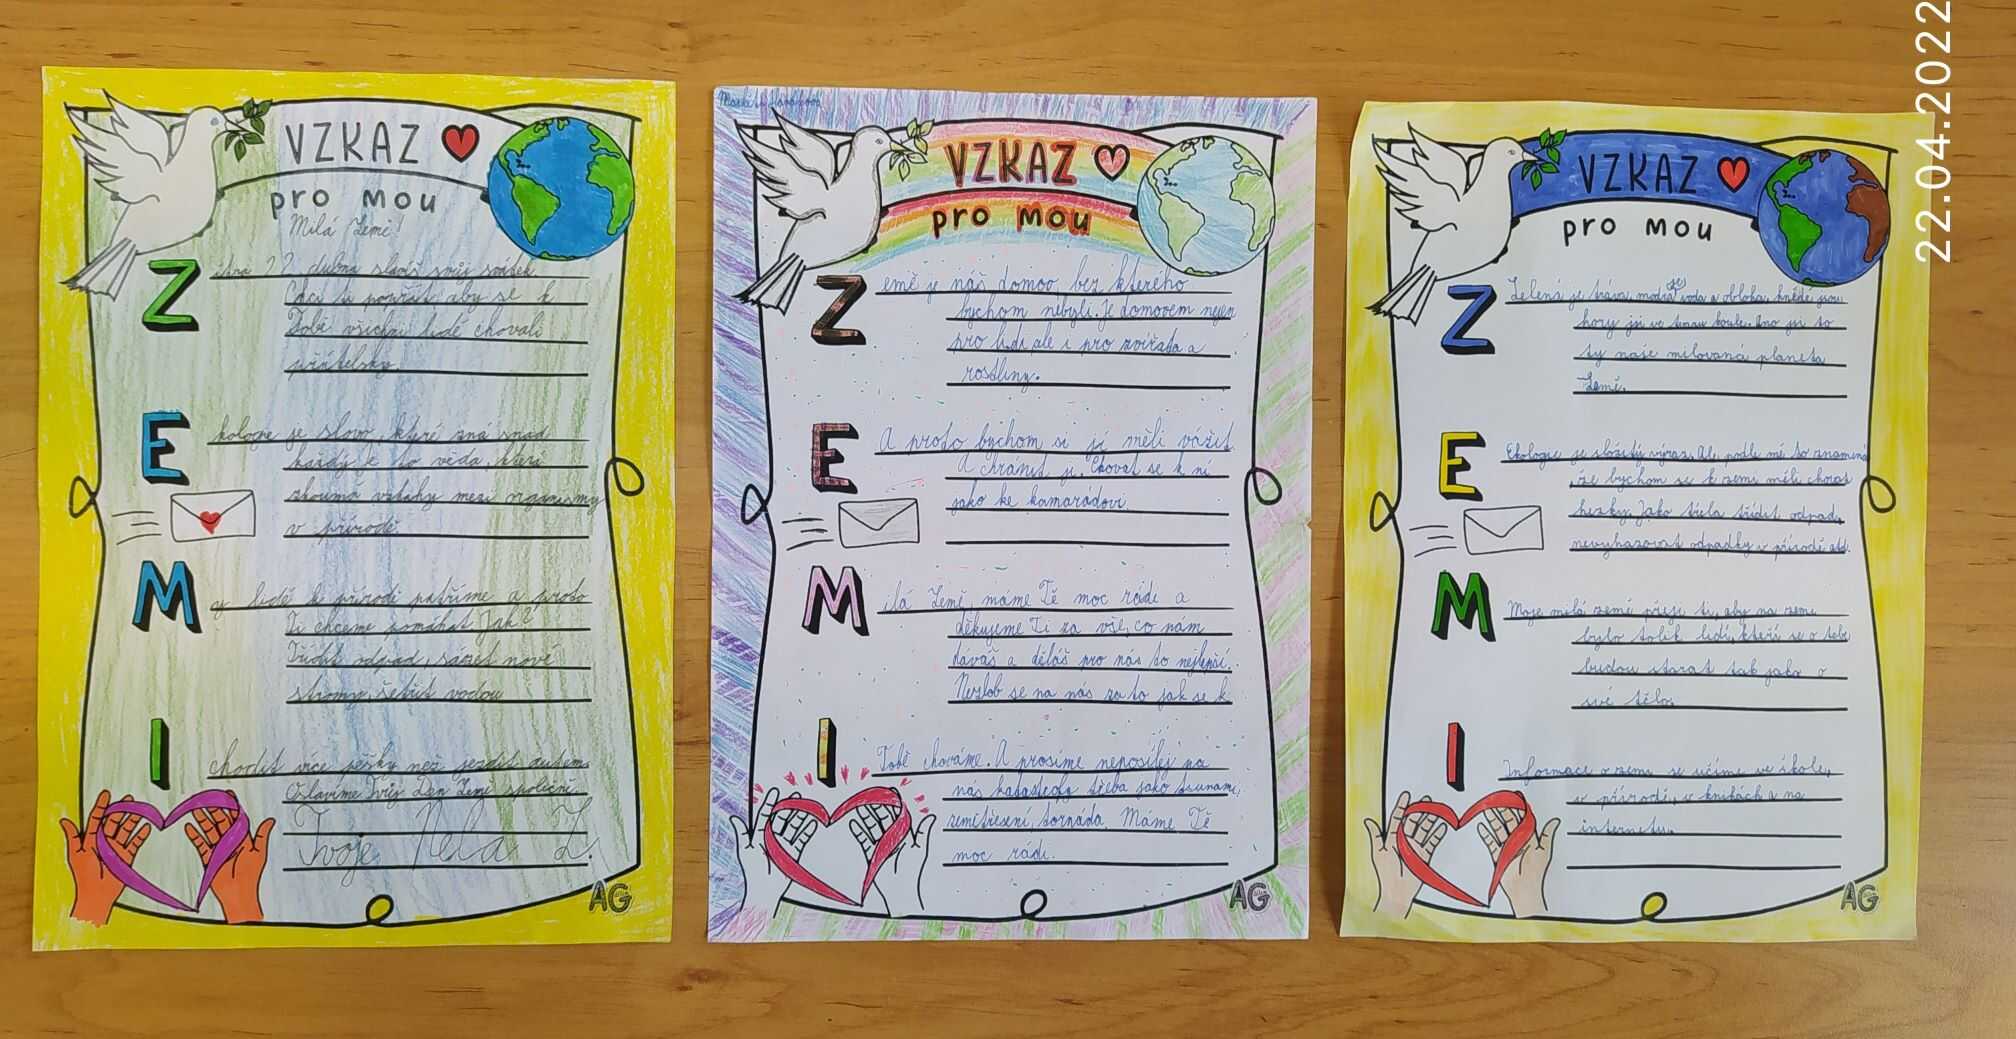 VZKAZ
pro mou
Milá Země!
Zítra 22 dubna slavíš svůj svátek.
Chci ti popřát, aby se k
Tobě všichni lidé chovali
přátelsky.
Ekologie je slovo, které zná snad
každý je to věda, která
zkoumá vztahy mezi organismy
v přírodě.
My lidé k přírodě patříme a proto
Ti chceme pomáhat Jak?
Třídit odpad, sázet nové
stromy, šetřit vodou
I chodit více pěšky než jezdit autem.
Oslavíme Tvůj Den Země společně.
Tvoje Nela Z.
AG
VZKAZ
pro mou
Země je náš domov, bez kterého
bychom nebyli. Je domovem nejen
pro lidi, ale i pro zvířata a
rostliny.
E
A proto bychom si jí měli vážit
A chránit ji. Chovat se k ní
jako ke kamarádovi.
Milá Země, máme Tě moc rádi a
děkujeme Ti za vše, co nám
dáváš a děláš pro nás to nejlepší.
Nezlob se na nás za to jak se k
I
Tobě chováme. A prosíme neposílej na
nás katastrofy třeba jako tsunami,
zemětřesení, tornáda. Máme Tě
moc rádi.
AG
VZKAZ
pro mou
Z
Zelená je tráva, modrá je voda a obloha, hnědé jsou
hory jsi ve tvaru koule. Ano jsi to
ty naše milovaná planeta
Země.
E
Ekologie je složitý výraz. Ale podle mě to znamená
že bychom se k zemi měli chovat
hezky. Jako třeba třídit odpad,
nevyhazovat odpadky v přírodě atd.
M
Moje milá země přeji ti, aby na zemi
bylo tolik lidí, kteří se o tebe
budou starat tak jako o
své tělo.
I
Informace o zemi se učíme ve škole,
v přírodě, v knihách a na
internetu.
AG
22.04.2022